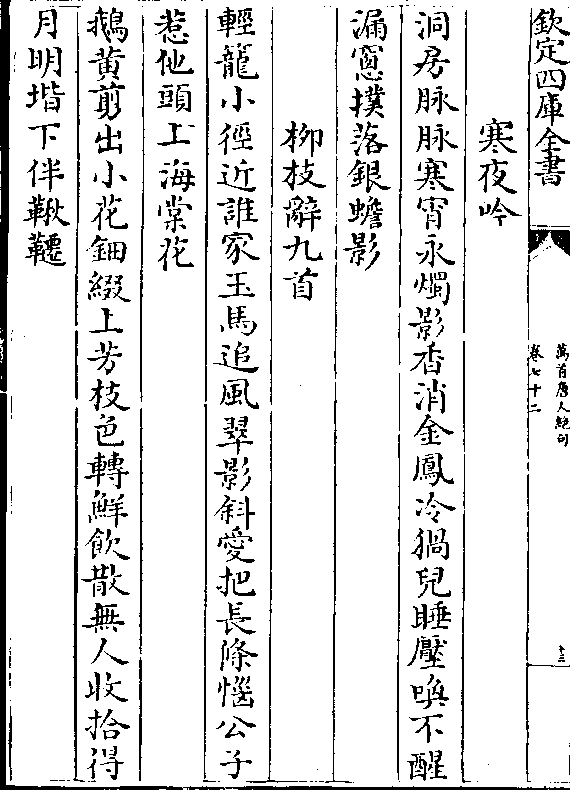 欽定四庫全書
萬首唐人絶句
卷七十二
十三
寒夜吟
洞房脉脉寒宵永燭影香消金鳳冷猧兒睡魘喚不醒
漏窻撲落銀蟾影
柳枝辭九首
輕籠小徑近誰家玉馬追風翠影斜愛把長條惱公子
惹他頭上海棠花
鵝黄剪出小花鈿綴上芳枝色轉鮮飲散無人收拾得
月明堦下伴鞦韆